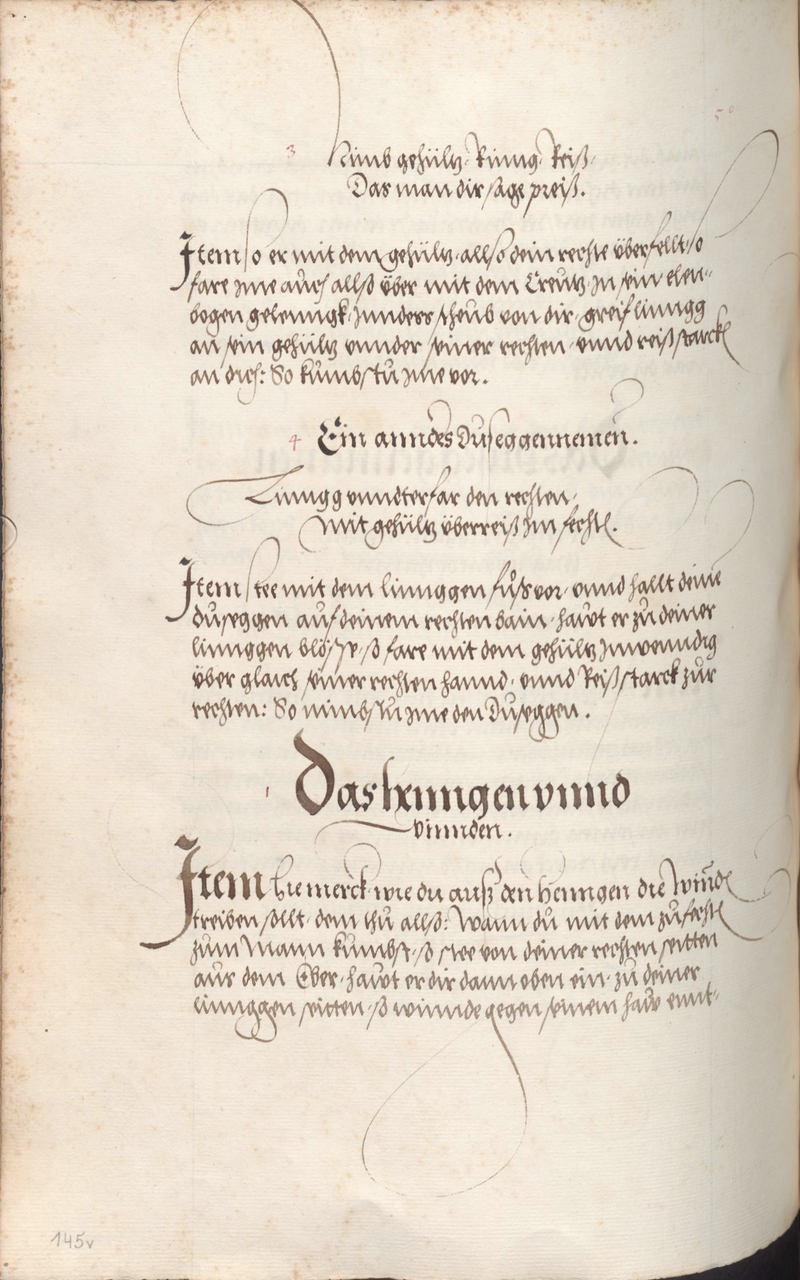 3 Nimb gehültz Ringg Reiß,
Das man dir sage preiß.
Item so er mit dem gehültz allso dein rechte überfellt, so
fare ime auch allso über mit dem Creutz, in sein elen-
bogen gelenngk, hinders scheub von dir, greif linngg
an sein gehültz vnnder seiner rechten, vnnd reiß starckh
an dich: So kumbstu ime vor.
4 Ein anndes Duseggennemen.
Linngg vnndterfar den rechten,
mit gehültz überreiß im fechtn.
Item stee mit dem linnggen fuß vor, vnnd hallt deine
duseggen auf deinem rechten bain, hawt er zu deiner
linnggen blösse, so fare mit dem gehültz Inwenndig
über glaich seiner rechten hannd, vnnd Reiß starck zur
rechten: So nimbstu ime den Duseggen.
1 Das henngen vnnd
vinnden.
Item hie merck wie du auß den henngen die Winndn
treiben sollt, dem thu allso: Wann du mit dem zufechtn
zum Mann kumbst, so stee von deiner rechten seitten
aus dem Eber, hawt er dir dann oben ein, zu deiner
linnggen seitten, so winnde gegen seinem haw ennt-
145v